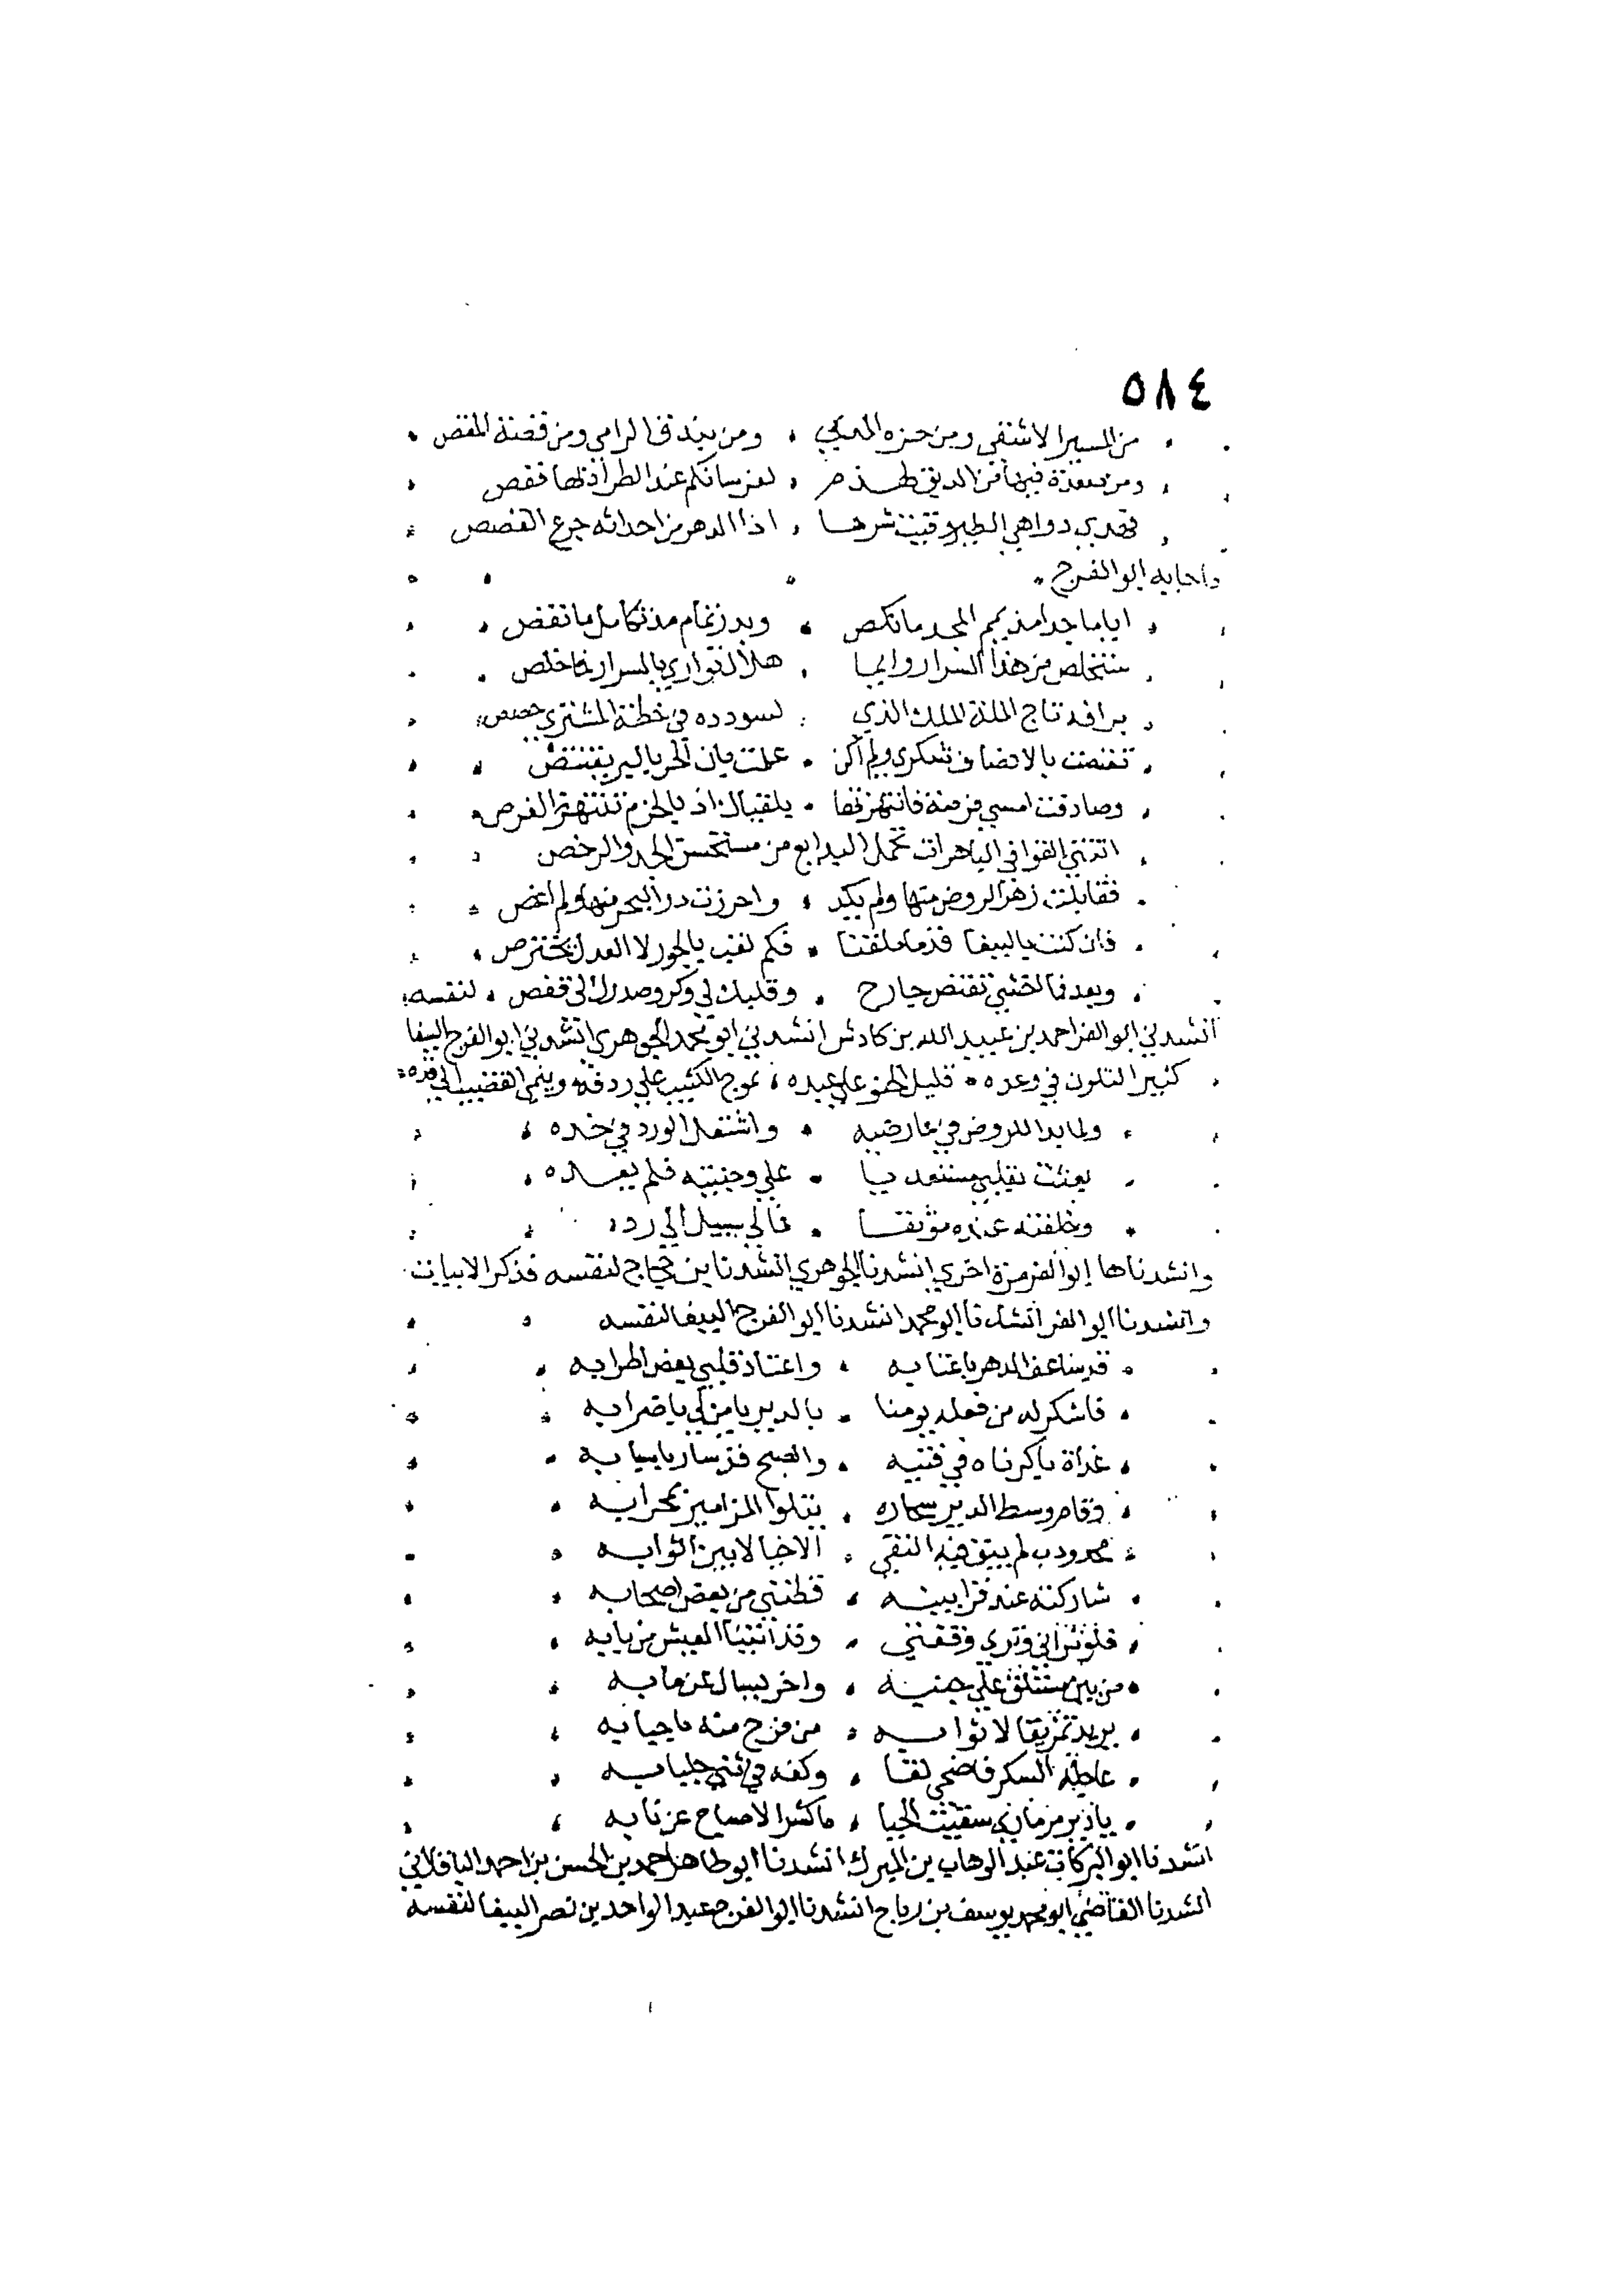 ٥٨٤
من المسير الاشتقى ومن حزه المدكي ، ومن بندق الرامي ومن قصة المقص
ومن فيهم الديق لفرسانكم عند الطراد بها قفص
فهدي دواهي الطير وقيت شرها ، اذا الدهر من احداثه جرع الغصص
واجابه ابو الفرج
ايا ماجدا مذ يمم المجد ما نكص ، وبدر تمام مذ تكامل ما نقص
ستخلص من هذا السرار وايما ، هلال توارى بالسرار فما خلص
برافة تاج الملة الملك الذي ، لسودده في خطة المشتري حصص
تقنصت بالانصاف شكري ولم اكن ، علمت بان الحر بالبر يقتنص
وصادفت امسي فرصة فانتهزتها ، بلقياك اذ بالحزم تنتهز الفرص
اتتني القوافي الباهرات تحمل البدايع من مستحسن الجد والرخص
فقابلت زهر الروض منها ولم يكد ، واحرزت در البحر منها ولم اغص
فان كنت بالببغا قدما ملقبا ، فكم لقب بالجور لا العدل مخترص
وبعد فما اخشى تقنص جارح ، وقلبك لي وكر وصدرك لي قفص ، لنفسه
انشدني ابو العز احمد بن عبيد الله بن كادش انشدني ابو محمد الجوهري انشدني ابو الفرج الببغا
كثير التلون في وعده ، قليل الحنو على عبده ، يموج الكثيب على ردفه وينمي القضيب الى قده
ولما بدا الروض في عارضيه ، واشتعل الورد في خده
بعثت بقلبي مستعديا ، على وجنتيه فلم يعده
وخلفته عنده موثقا ، فما لي سبيل الى رده
وانشدناها ابو العز مرة اخرى انشدنا الجوهري انشدنا بن حجاج لنفسه فذكر الابيات
وانشدنا ابو العز انشدنا ابو محمد انشدنا ابو الفرج الببغا لنفسه
قد ساعف الدهر باعتابه ، واعتاد قلبي بعض اطرابه
فاشكر له من فعله يومنا ، بالدير يا من لي باضرابه
غداة باكرناه في فتية ، والصبح قد سار باسبابه
وقام وسط الدير سحاره ، يتلوا المزامير بمحرابه
محدودب لم يبق فيه التقى ، الا خيالا بين اثوابه
شاركته عند قرابينه ، فظنني من بعض اصحابه
فلو تراني وترى وقفتي ، وقد اتينا العيش من بابه
من بين مستلق على جنبه ، واخر يسال عن ما به
يريد تمزيقا لاثوابه ، من فرح منه باحبابه
عاجله السكر فاضحى لقا ، وكفه في ثني جلبابه
يا دير مرمان سقيت الحيا ، ما كشر الاصباح عن نابه
انشدنا ابو البركات عبد الوهاب بن المبرك انشدنا ابو طاهر احمد بن الحسن بن احمد الباقلاني
انشدنا القاضي ابو محمد يوسف بن رباح انشدنا ابو الفرج عبد الواحد بن نصر الببغا لنفسه